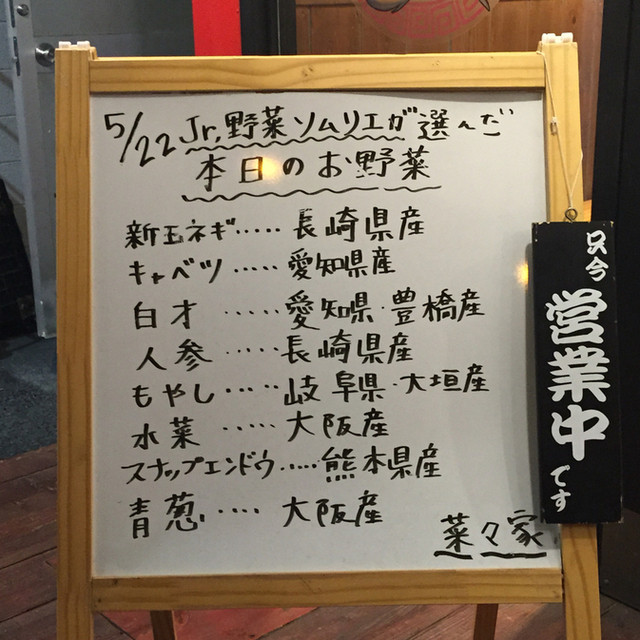 5/22 Jr.野菜ソムリエが選んだ
本日のお野菜
新玉ネギ‥‥‥長崎県産
キャベツ‥‥‥愛知県産
白才‥‥‥愛知県・豊橋産
人参‥‥‥長崎県産
もやし‥‥‥岐阜県・大垣産
水菜‥‥‥大阪産
スナップエンドウ‥‥‥熊本県産
青葱‥‥‥大阪産
菜々家
只今
営業中
です